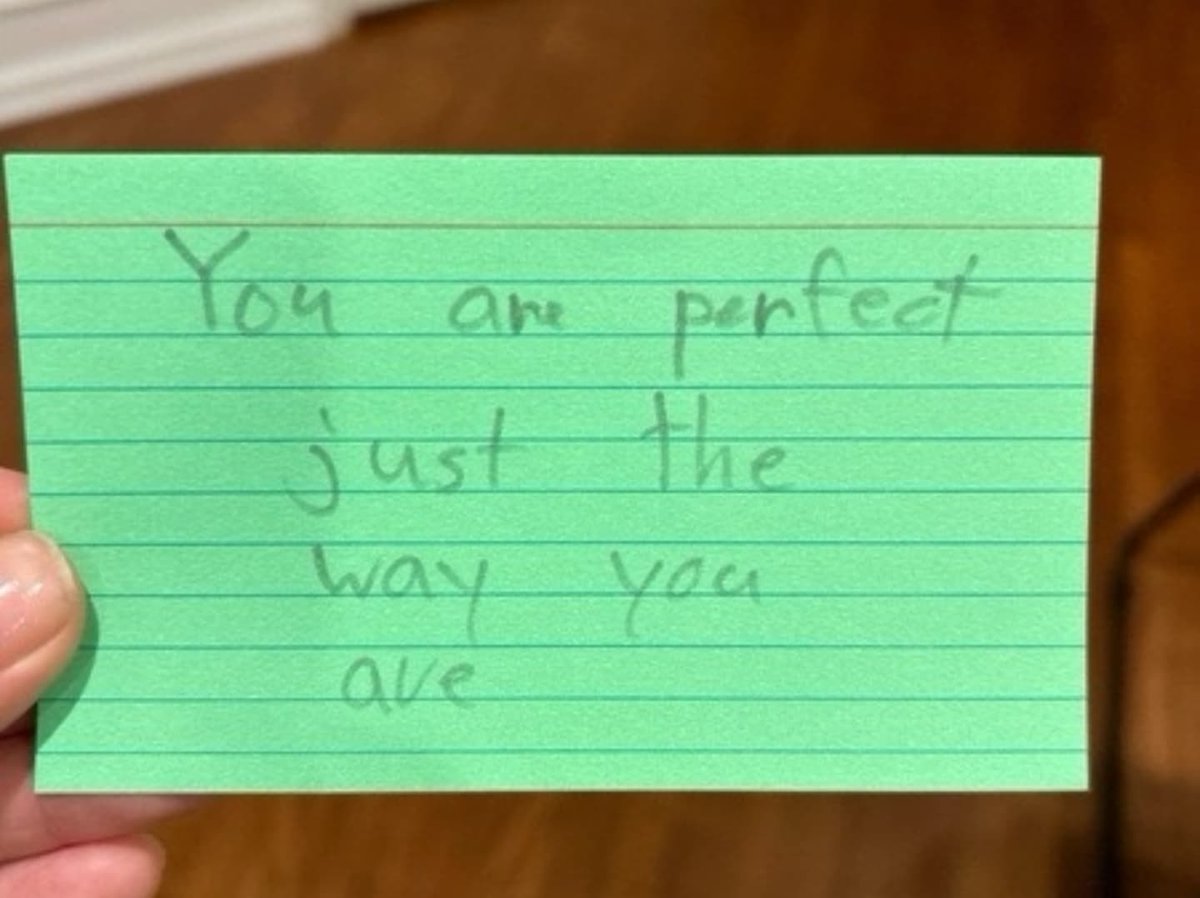 You are perfect
just the
way you
are